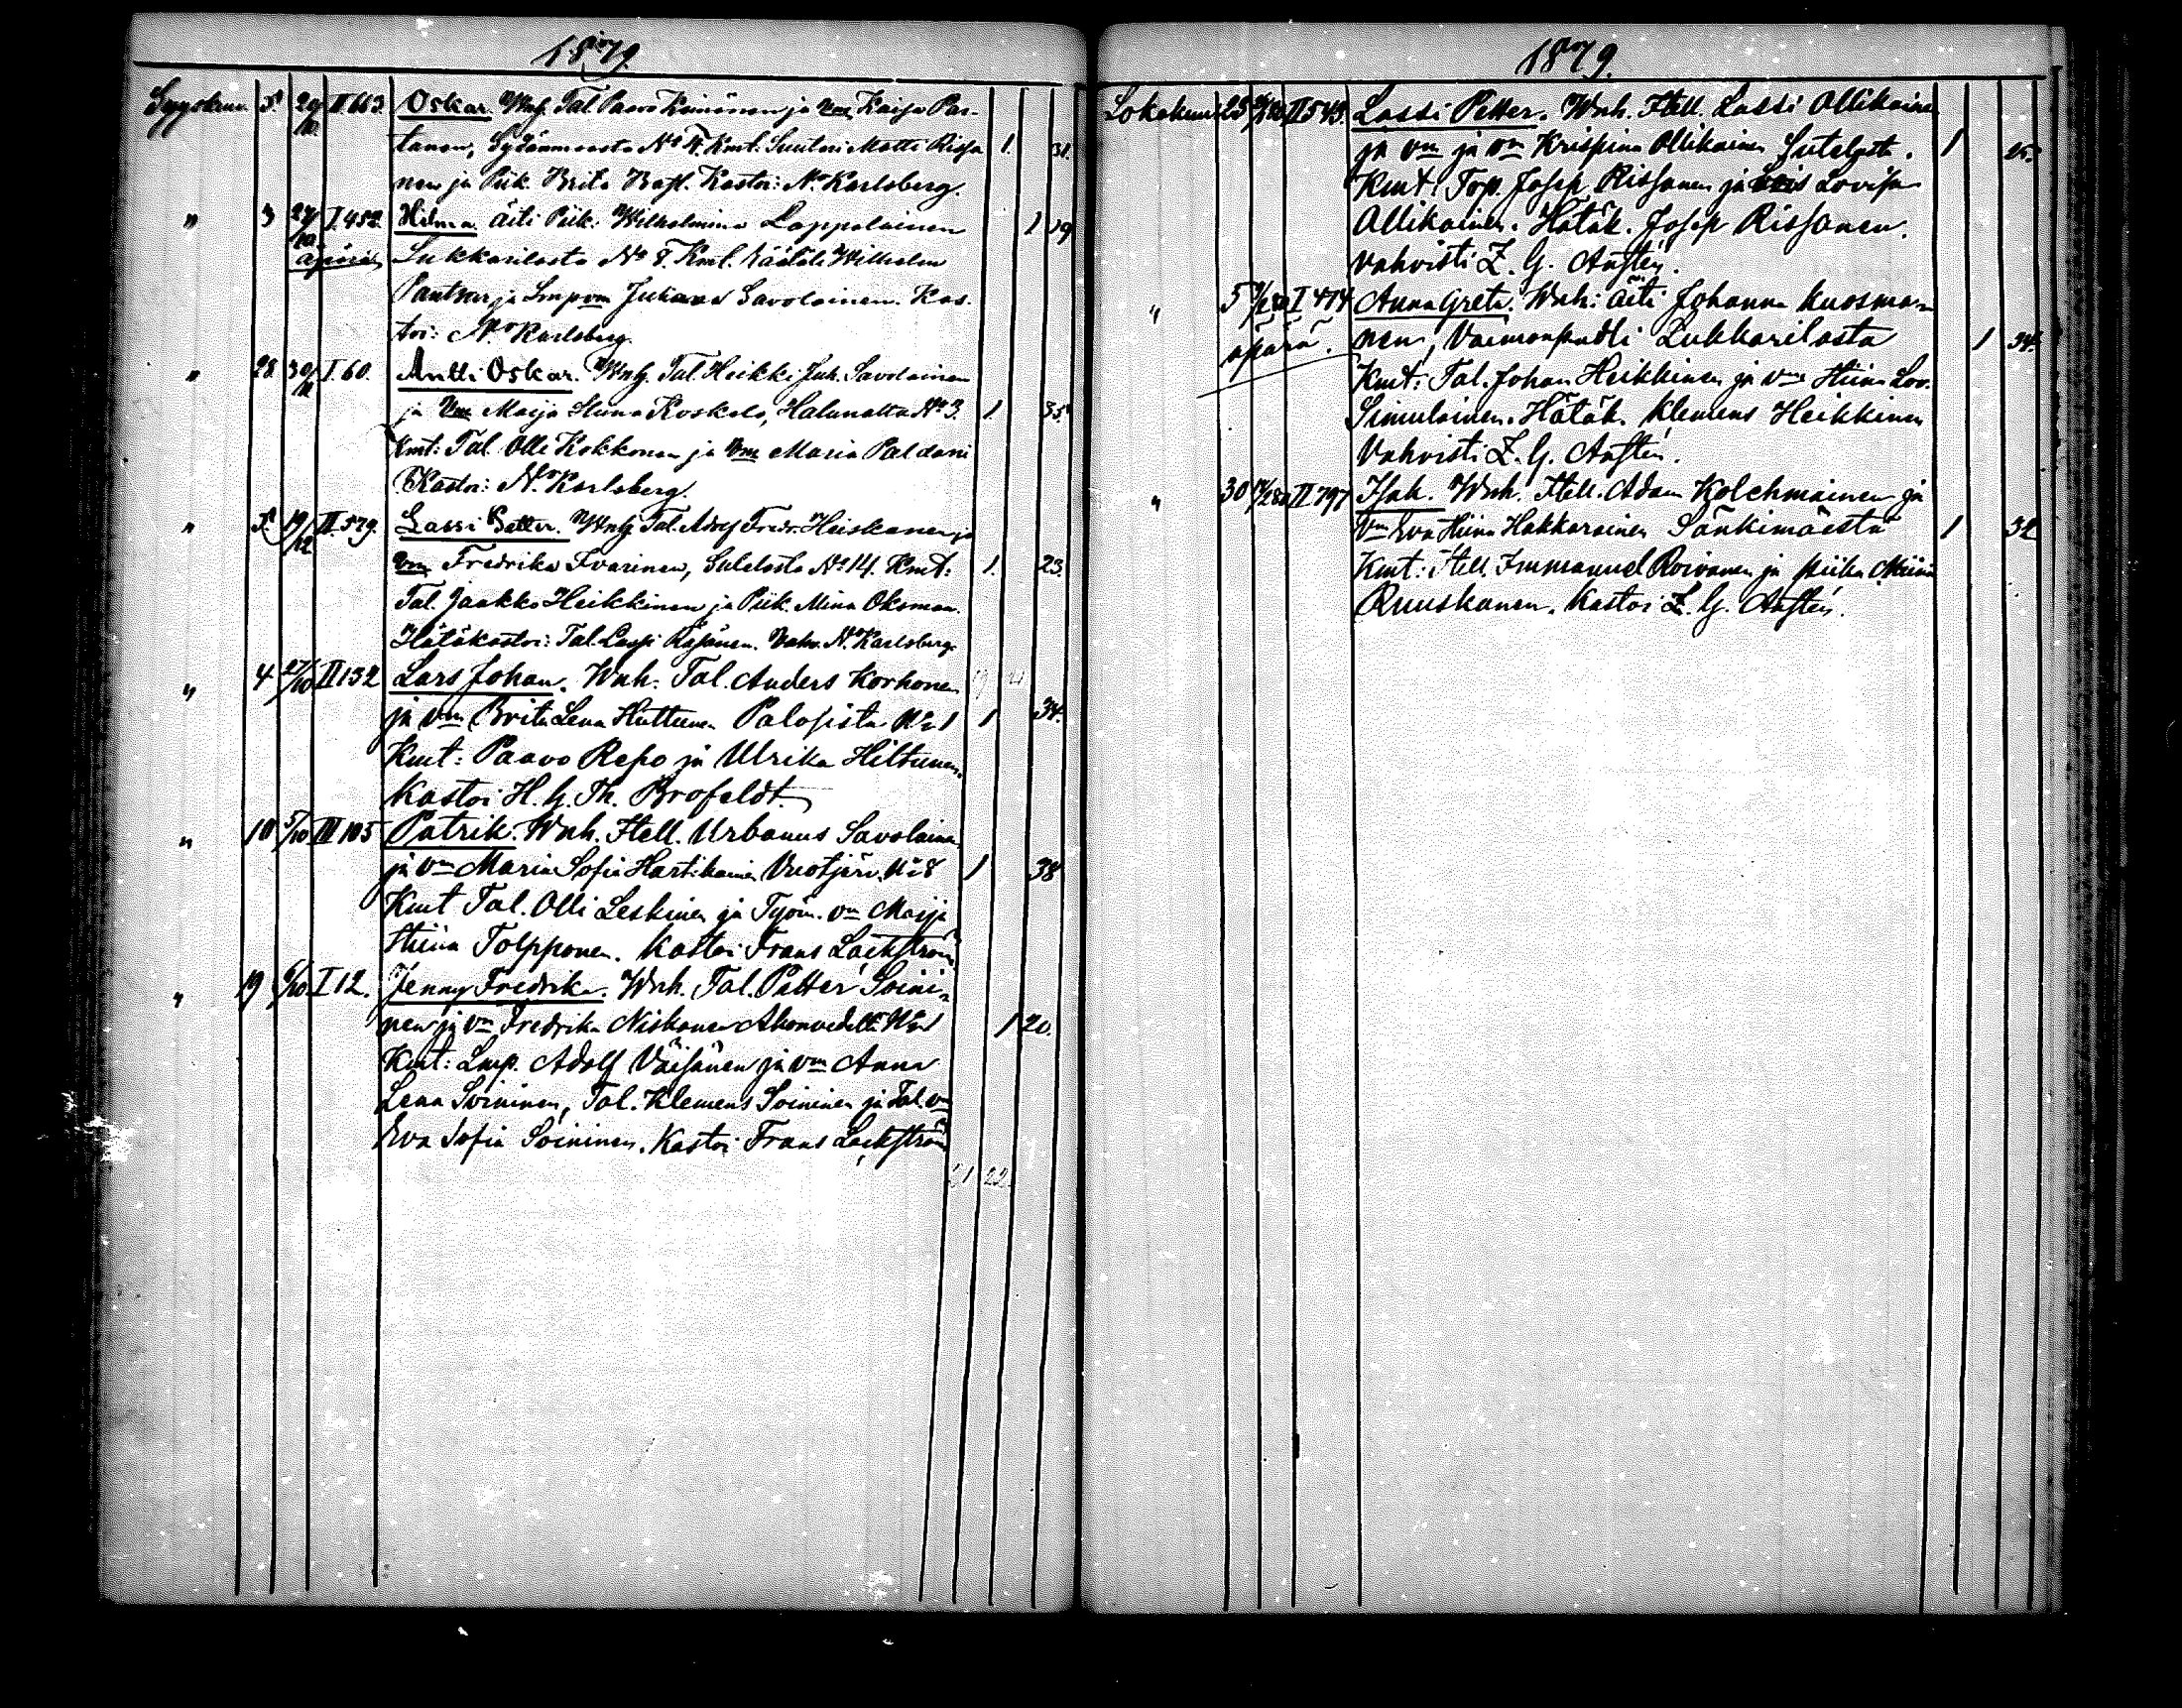 1879.
Syyskuu 5 29/10 II.663. Oskar. Wnh. Tal. Paavo Kainönen ja Vm Kaisa Par-
tanen, Sydänmaasta No 4. Kmt. Suutari Matti Rissa 1. 31.
nen ja Piik. Brita Kastoi: N. Karlsberg.
" 3 27/10 I.452. Hilma. äiti Piik: Wilhelmina Lappalainen 1 29
äpärä Lukkarilasta No 8. Kmt. Räätäli Wilhelm
ja Lmp vm Juliana Savolainen. Kas-
toi: N. Karlsberg.
" 28. 30/11 I.60. Antti Oskar. Wnh. Tal. Heikki Juh. Savolainen
ja Vm Maija Stuna Koskelo, Halunalta No 3. 1. 35.
Kmt: Tal Olli Kokkonen ja Vm Maria Paldani
Kastoi: N. Karlsberg.
" 5. 19/12 II.579. Lassi Petter. Wnh. Tal. Adolf Fredr. Heiskanen ja
Vm Fredrika Tvarinen, No 14. Kmt: 1. 23.
Tal. Jaakko Heikkinen ja Piik. Mina Oksman.
Hätäkastoi: Tal. Lassi Räsänen. Vahv. N. Karlsberg.
" 4 27/10 II 132 Lars Johan. Wnh. Tal. Anders Korhonen
ja vm Brita Lena Huttunen Palosista No 1 1 34.
Kmt: Paavo Repo ja Ulrika Hiltunen.
Kastoi H. G. Th. Brofeldt.
" 10 5/10 III 105 Patrik. Wnh. Itell. Urbanus Savolainen
ja vm Maria Sofia Hartikainen Vuotjärv. No 8 1 38
Kmt Tal. Olli Leskinen ja Työm. vm Maija
Stiina Tolpponen. Kastoi Frans Lackström
" 19 6/10 I 12. Jenny Fredrika. Wnh. Tal. Petter Soini-
nen ja vm Fredrika Niskanen Akonvedeltä No 1 1 20.
Kmt: Lmp. Adolf Väisänen ja vm Anna
Lena Soininen, Tal. Klemens Soininen ja Tal. vm
Eva Sofia Soininen. Kastoi Frans Lackström
21 22.
1879.
Lokakuu 23 II 543. Lassi Petter. Wnh. Itell. Lassi Ollikainen
ja vm ja vm Krispina Ollikainen 1 25.
Kmt: Top. Josep Rissanen ja Lovisa
Ollikainen. Hätäk. Josep Rissanen.
Vahvisti Z. G. Anstén.
" 5 I 474 Anna Greta. Wnh: äiti Johanna Kuosma-
äpärä. nen, Lukkarilasta 1 34.
Kmt: Tal. Johan Heikkinen ja vm Stiina Lov.
Simulainen. Hätäk. Klemens Heikkinen
Vahvisti Z. G. Anstén.
" 30 II 797 Isak. Wnh. Itell. Adam Kolehmainen ja
vm Eva Stiina Hakkarainen Sänkimäestä 1 32
Kmt: Itell. Immanuel Roivanen ja piika Miina
Ruuskanen. Kastoi Z. G. Anstén.